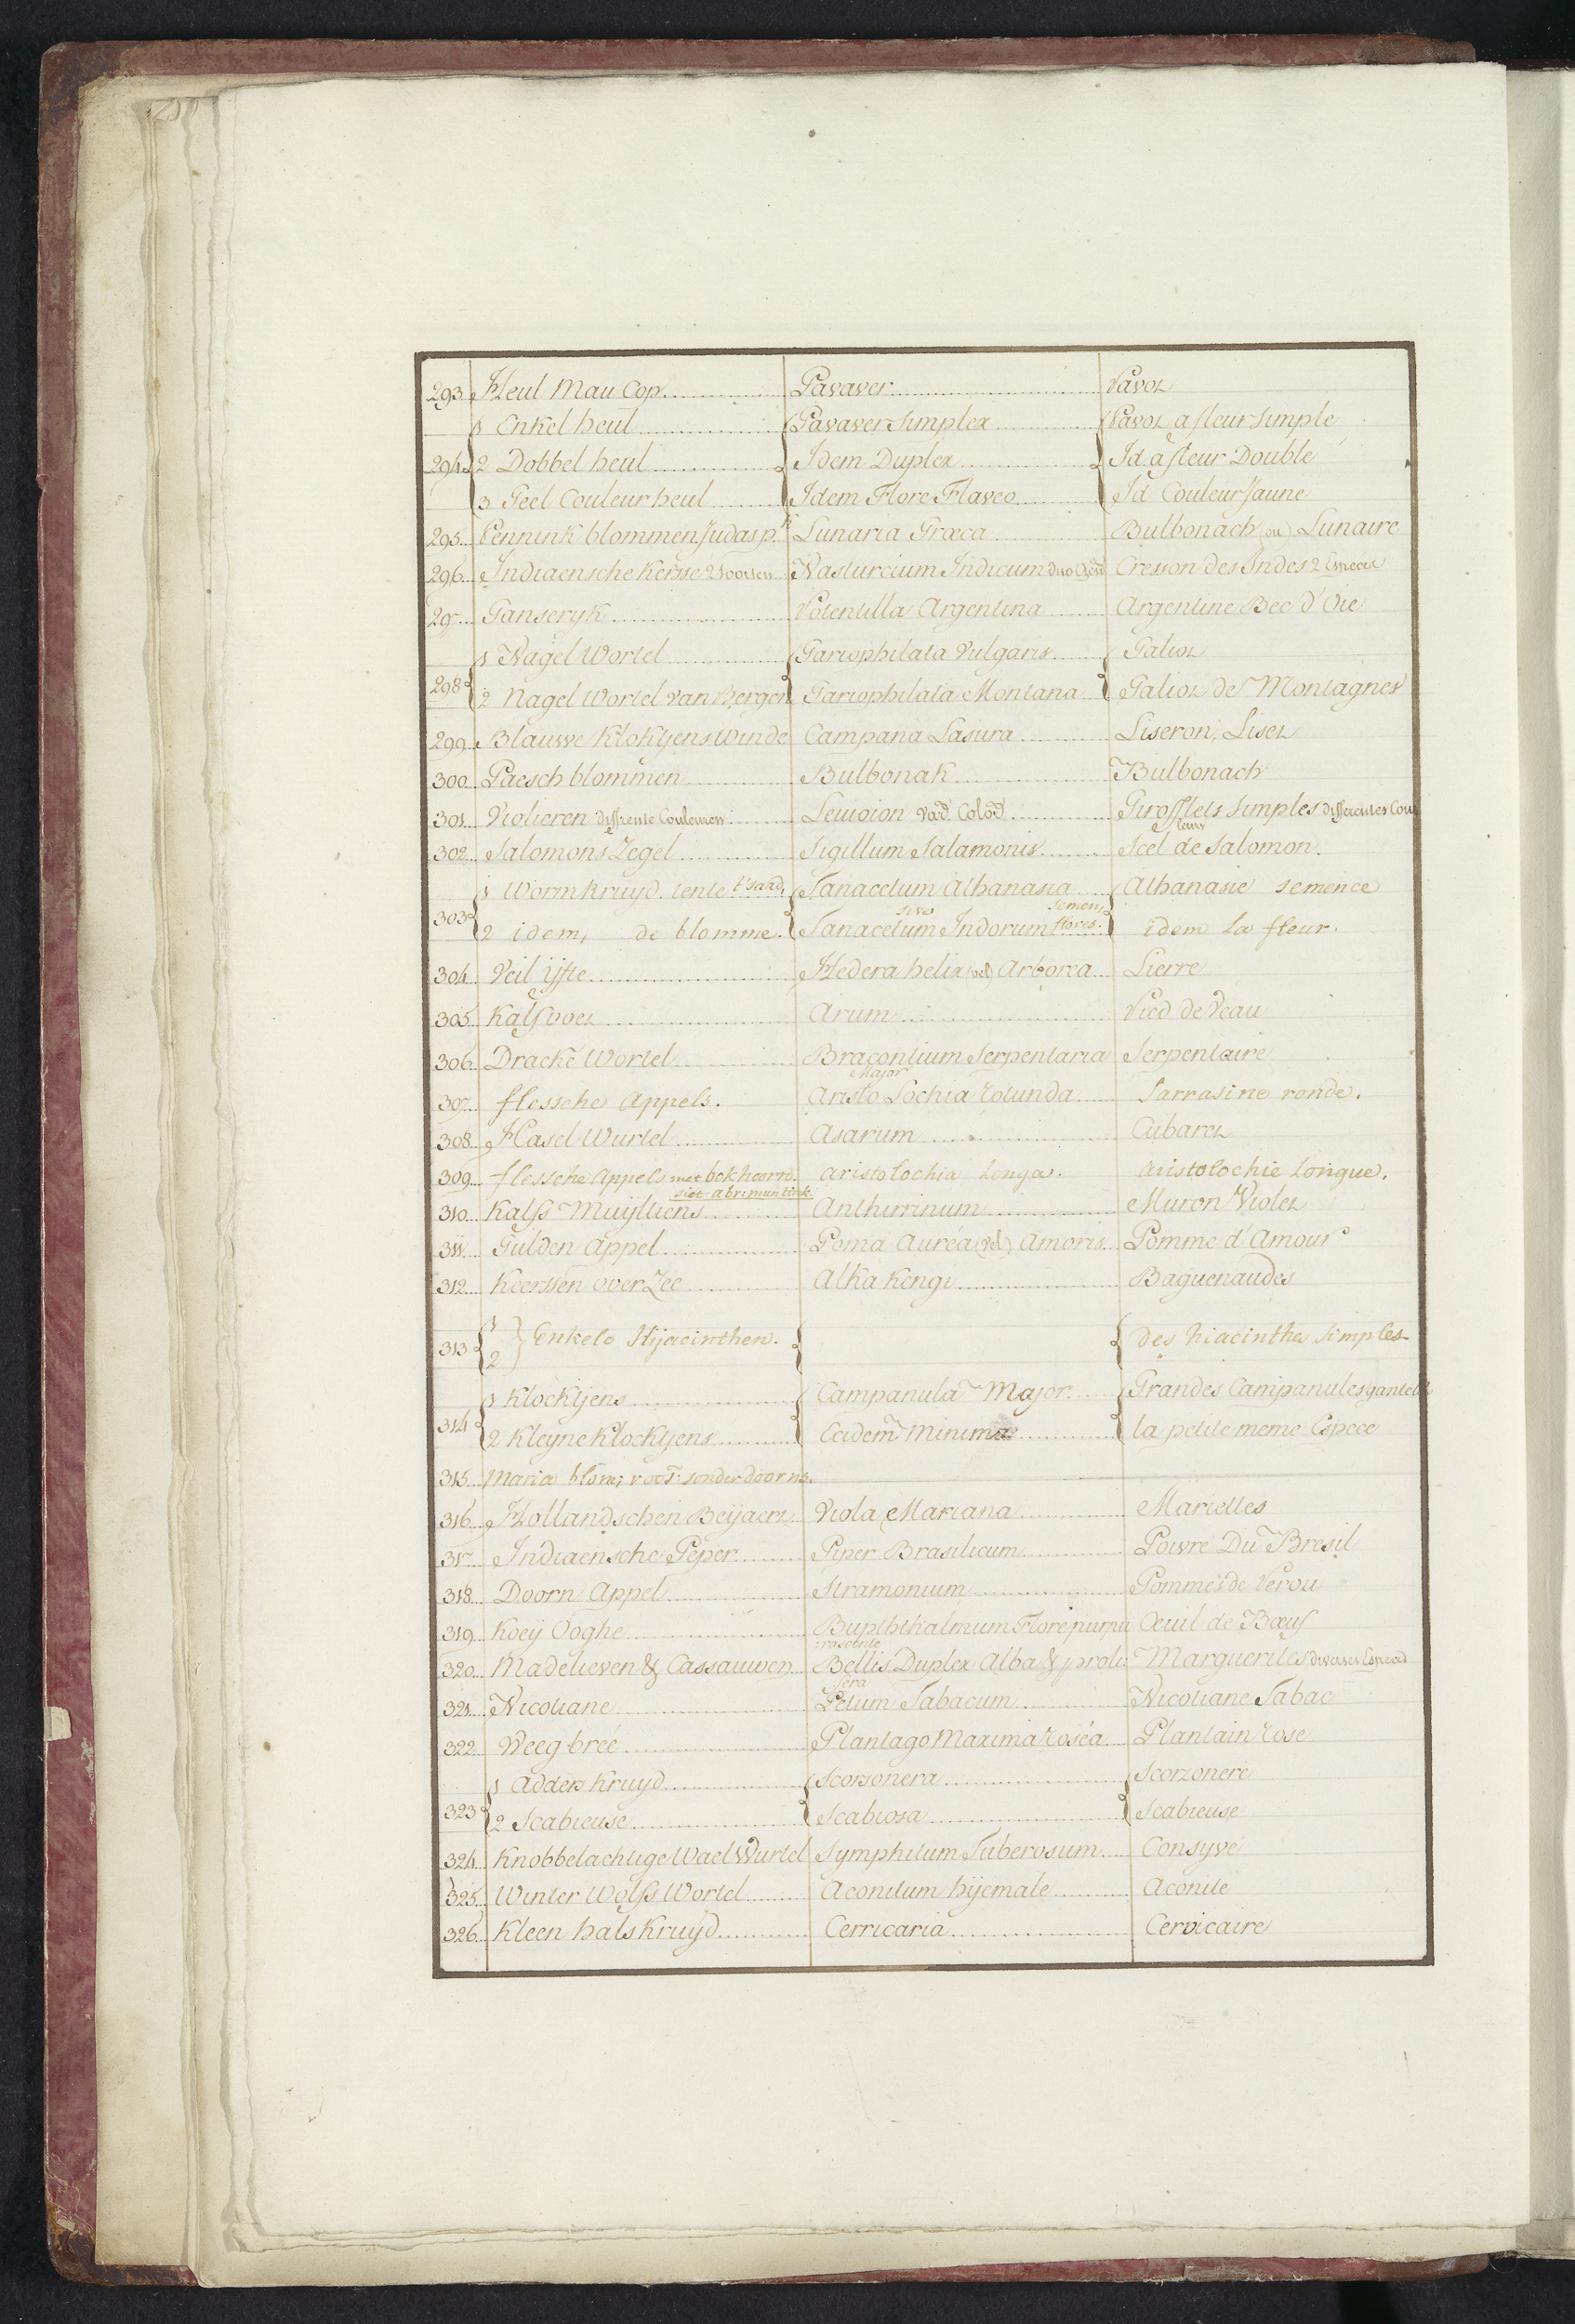 293 Heul Mau Cop Pavaver Pavot
1 Enkel heul Pavaver Simplex Pavot a fleur Simple
294 2 Dobbel heul Idem Duplex Id. a fleur Double
3 Geel Couleur heul Idem Flore Flaveo Id Couleur Jaune
295 Pennink blommen Judas p. Lunaria Græca Bulbonach (ou) Lunaire
296 Indiaensche Kersse 2 Soorten Nasturcium Indicum duo Cresson des Indes 2
297 Ganseryk Potentilla Argentina Argentine Bec d'Oie
1 Nagel Wortel Gariophilata Vulgaris Galiot
298 2 Nagel Wortel van Bergen Gariophilata Montana Galiot de Montagnes
299 Blauwe Kloktjens Winde Campana Lasura Liseron, Liset
300 Paesch blommen Bulbonak Bulbonach
301 Violieren diffrente Couleuren Leucoion Vard Colord Girofflets Simples differentes Cou
leurs
302 Salomons Zegel Sigillum Salamonis Scel de Salomon.
1 Wormkruyd. tente t'saad, Tanacetum Athanasia Athanasie semence
303 sive semens
2 idem, de blomme. Tanacetum Indorum flores. idem La fleur.
304 Veil ijfte Hedera helix (vel) Arborea Lierre
305 Kalfvoet Arum Pied de Veau
306 Dracke Wortel Bracontium Serpentaria Serpentaire
Major
307 flessche Appels. Aristo Lochia rotunda Sarrasine ronde.
308 Hasel Wurtel Asarum Cabaret
309 flessche Appels met bokhoorn. aristolochia longa. aristolochie Longue.
siet abrimuntink.
310 Kalfs Muyltiens Anthirrinum Muron Violet
311 Gulden Appel Poma Auréa (vel) Amoris Pomme d'Amour
312 Keerssen over Zee Alka Kengi Baguenaudes
1
313 Enkele Hijacinthen. des hiacinthe Simples
2
1 Klocktjens Campanula Major Grandes Campanules gantel
314
2 Kleyne Klocktjens Eadem Minima la petite meme Espece
315 Maria blom, root: sonder doorns.
316 Hollandschen Beijaert Viola Mariana Marielles
317 Indiaensche Peper Piper Brasilicum Poivre Du Bresil
318 Doorn Appel Stramonium Pommes de Perou
319 Koeij Ooghe Buphthalmum Flore purpu Œuil de Bœuf
:rascente
320 Madelieven & Cassauwen Bellis Duplex Alba & proli: Marguerites diverses
fera
321 Nicotiane Petum Tabacum Nicotiane Tabac
322 Weeg breé Plantago Maxima roséa Plantain rose
1 Adders Kruyd Scorsonera Scorzonere
323
2 Scabieuse Scabiosa Scabieuse
324 Knobbelachtige Wael Wurtel Symphitum Tuberosum Consyve
325 Winter Wolfs Wortel Aconitum hijemale Aconite
326 Kleen hals Kruyd Cerricaria Cervicaire